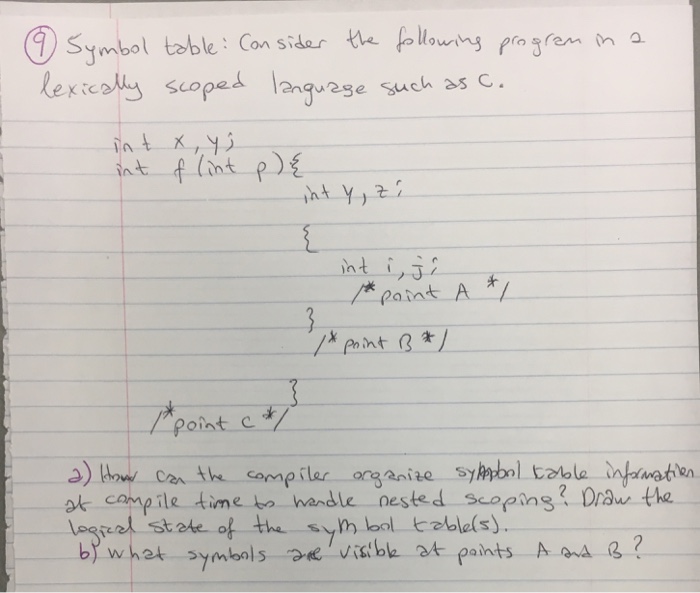 9 Symbol table: Consider the following program in a
lexically scoped language such as C.
int x, y;
int f (int p) {
int y, z;
{
int i, j;
/* point A */
}
/* point B */
}
/* point C */
a) How can the compiler organize symbol table information
at compile time to handle nested scoping? Draw the
logical state of the symbol table(s).
b) what symbols are visible at points A and B?